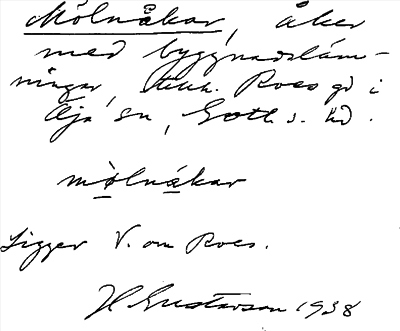 Mölnåkar, åker
med byggnadsläm-
ningar, tillh. Roes gd i
Öja sn, Gotl. s. hd.
mòlnákar
Ligger V. om Roes.
H Gustavson 1938